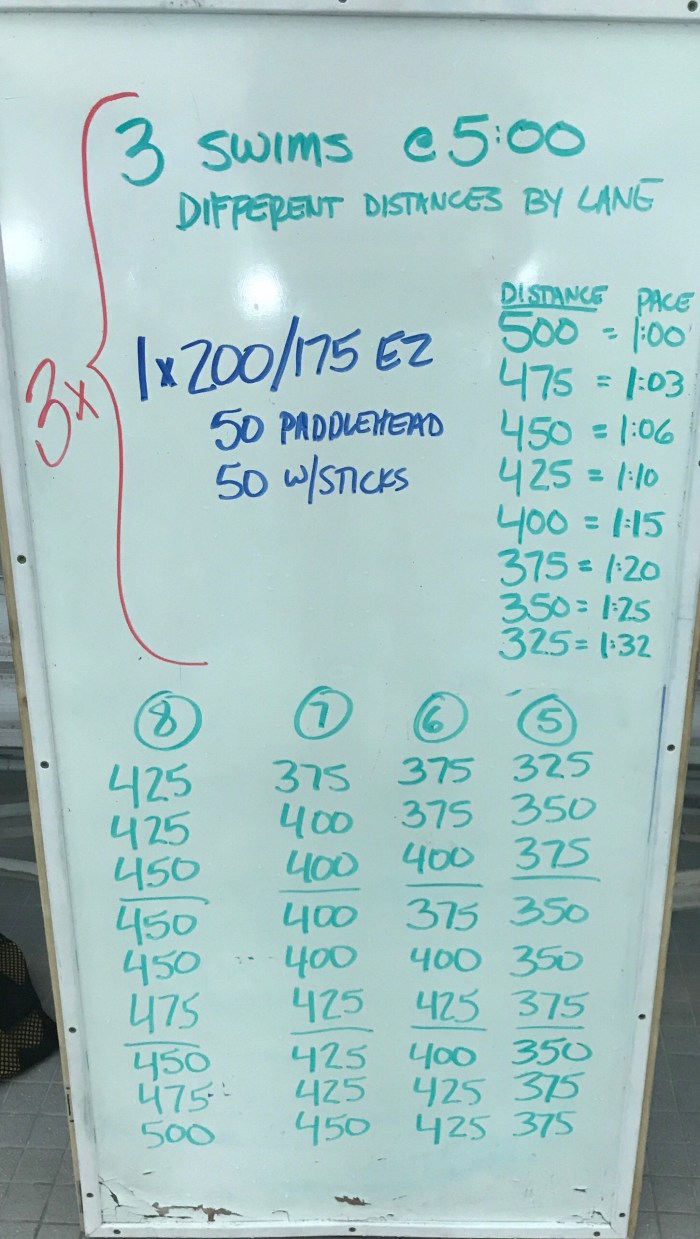 3 SWIMS @ 5:00
DIFFERENT DISTANCES BY LANE
3x
1x200/175 EZ
50 PADDLEHEAD
50 W/STICKS
DISTANCE PACE
500 = 1:00
475 = 1:03
450 = 1:06
425 = 1:10
400 = 1:15
375 = 1:20
350 = 1:25
325 = 1:32
8 7 6 5
425 375 375 325
425 400 375 350
450 400 400 375
450 400 375 350
450 400 400 350
475 425 425 375
450 425 400 350
475 425 425 375
500 450 425 375